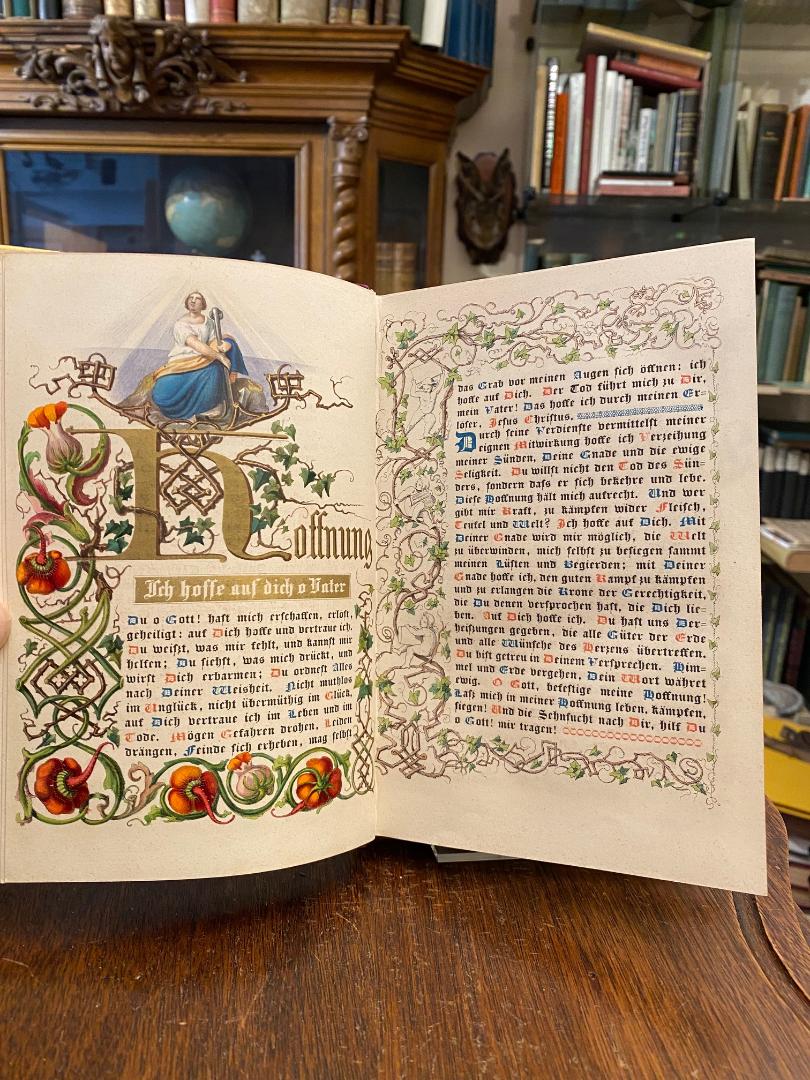 Hoffnung
Ich hoffe auf dich o Vater
Du o Gott! hast mich erschaffen, erlöst,
geheiligt: auf Dich hoffe und vertraue ich.
Du weißt, was mir fehlt, und kannst mir
helfen; Du siehst, was mich drückt, und
wirst Dich erbarmen; Du ordnest Alles
nach Deiner Weisheit. Nicht muthlos
im Unglück, nicht übermüthig im Glück,
auf Dich vertraue ich im Leben und im
Tode. Mögen Gefahren drohen, Leiden
drängen, Feinde sich erheben, mag selbst
das Grab vor meinen Augen sich öffnen: ich
hoffe auf Dich. Der Tod führt mich zu Dir,
mein Vater! Das hoffe ich durch meinen Er-
löser, Jesus Christus.
Durch seine Verdienste vermittelst meiner
eignen Mitwirkung hoffe ich Verzeihung
meiner Sünden, Deine Gnade und die ewige
Seligkeit. Du willst nicht den Tod des Sün-
ders, sondern dass er sich bekehre und lebe.
Diese Hoffnung hält mich aufrecht. Und wer
gibt mir Kraft, zu kämpfen wider Fleisch,
Teufel und Welt? Ich hoffe auf Dich. Mit
Deiner Gnade wird mir möglich, die Welt
zu überwinden, mich selbst zu besiegen sammt
meinen Lüsten und Begierden; mit Deiner
Gnade hoffe ich, den guten Kampf zu kämpfen
und zu erlangen die Krone der Gerechtigkeit,
die Du denen versprochen hast, die Dich lie-
ben. Auf Dich hoffe ich. Du hast uns Ver-
heißungen gegeben, die alle Güter der Erde
und alle Wünsche des Herzens übertreffen.
Du bist getreu in Deinem Versprechen. Him-
mel und Erde vergehen, Dein Wort währet
ewig. O Gott, befestige meine Hoffnung!
Laß mich in meiner Hoffnung leben, kämpfen,
siegen! Und die Sehnsucht nach Dir, hilf Du
o Gott! mir tragen!